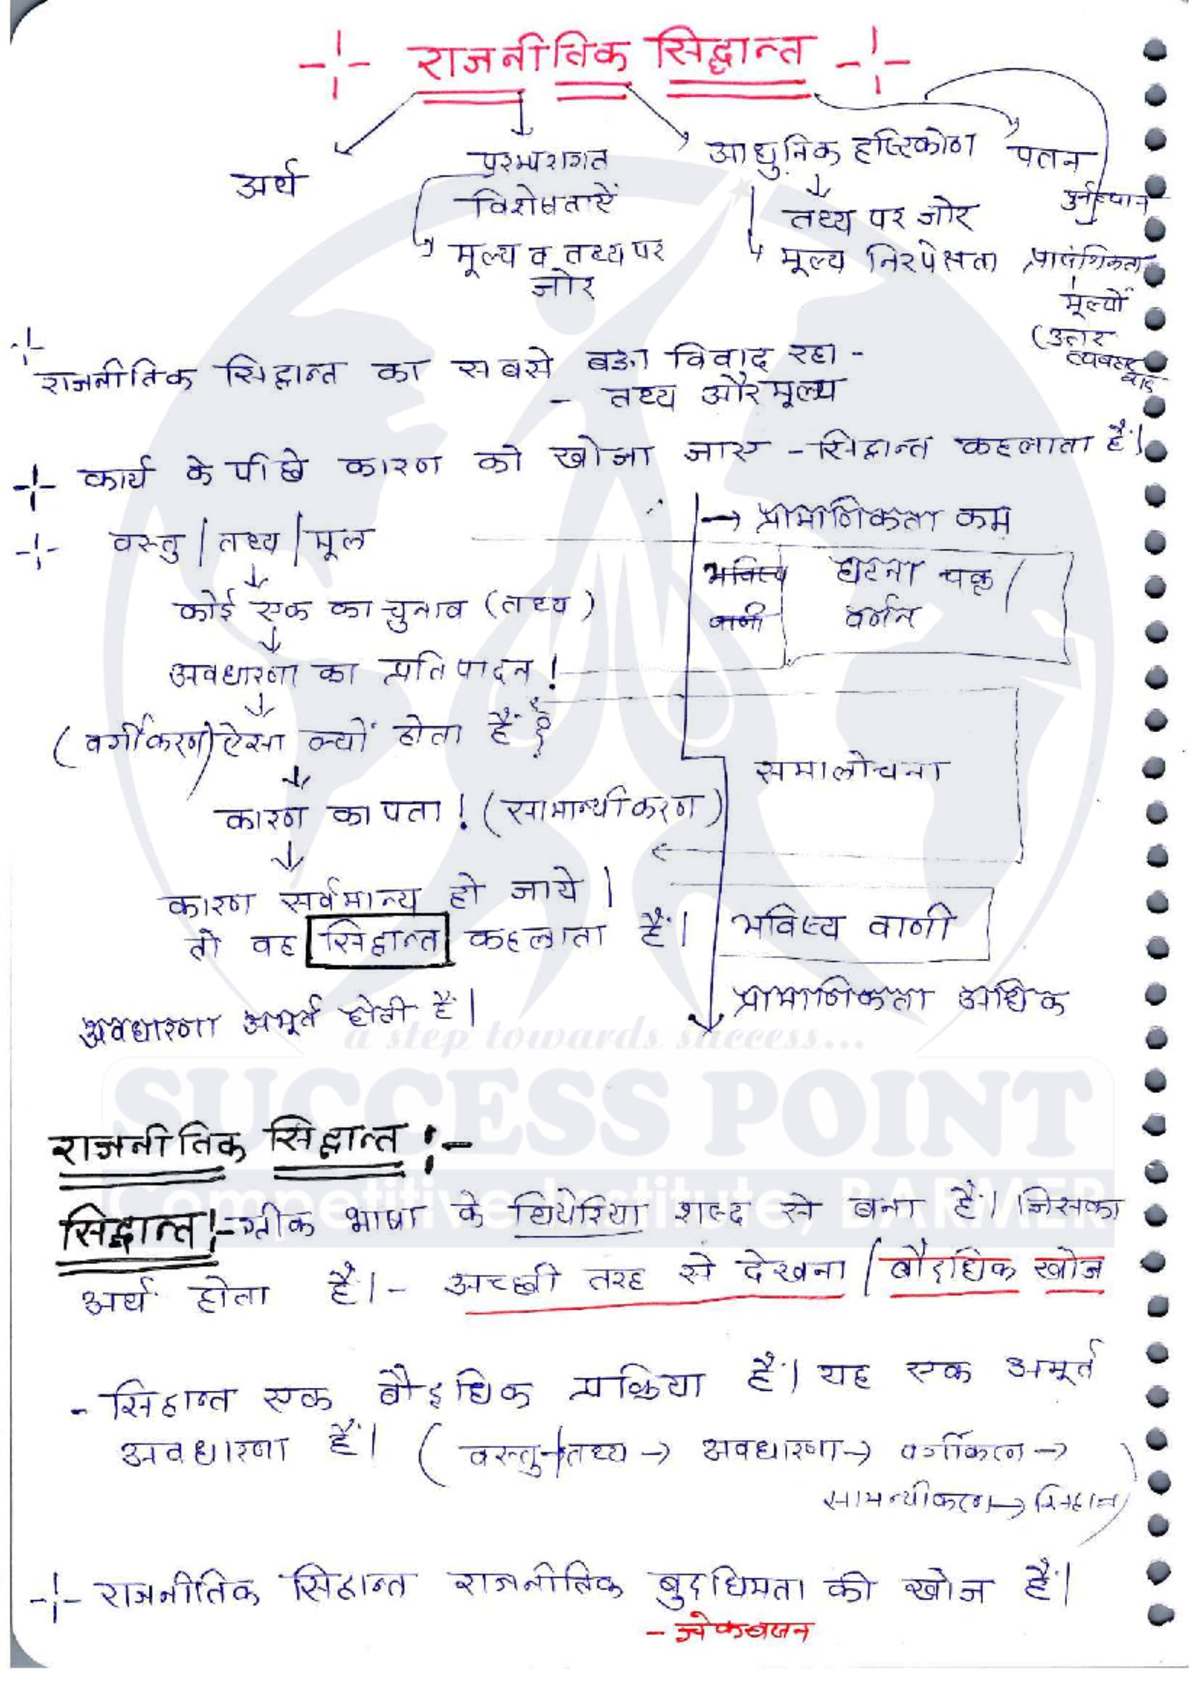 राजनीतिक सिद्धान्त
अर्थ
परम्परागत
विशेषताऐं
मूल्य व तथ्य पर
जोर
आधुनिक दृष्टिकोण
तथ्य पर जोर
मूल्य निरपेक्षता
पतन
पुर्नउत्थान
प्रासंगिकता
मूल्यों
(उत्तर
व्यवहारवाद
राजनीतिक सिद्धान्त का सबसे बड़ा विवाद रहा -
- तथ्य और मूल्य
कार्य के पीछे कारण को खोजा जाए - सिद्धान्त कहलाता हैं।
वस्तु / तथ्य / मूल
→ प्रामाणिकता कम
कोई एक का चुनाव (तथ्य)
भविष्य
वाणी
घटना चक्र /
वर्णन
अवधारणा का प्रतिपादन !
(वर्गीकरण) ऐसा क्यों होता हैं ?
समालोचना
कारण का पता ! (सामान्यीकरण)
कारण सर्वमान्य हो जाये |
तो वह सिद्धान्त कहलाता हैं।
भविष्य वाणी
प्रामाणिकता अधिक
अवधारणा अमूर्त होती हैं।
a step towards success...
SUCCESS POINT
Competitive Institute, BARMER
राजनीतिक सिद्धान्त :-
सिद्धान्त :- ग्रीक भाषा के थियेरिया शब्द से बना हैं। जिसका
अर्थ होता हैं।- अच्छी तरह से देखना / बौद्धिक खोज
- सिद्धान्त एक बौद्धिक प्रक्रिया हैं। यह एक अमूर्त
अवधारणा हैं। (वस्तु + तथ्य → अवधारणा → वर्गीकरण →
सामन्यीकरण → सिद्धान्त)
राजनीतिक सिद्धान्त राजनीतिक बुद्धिमता की खोज हैं।
- जेकबसन